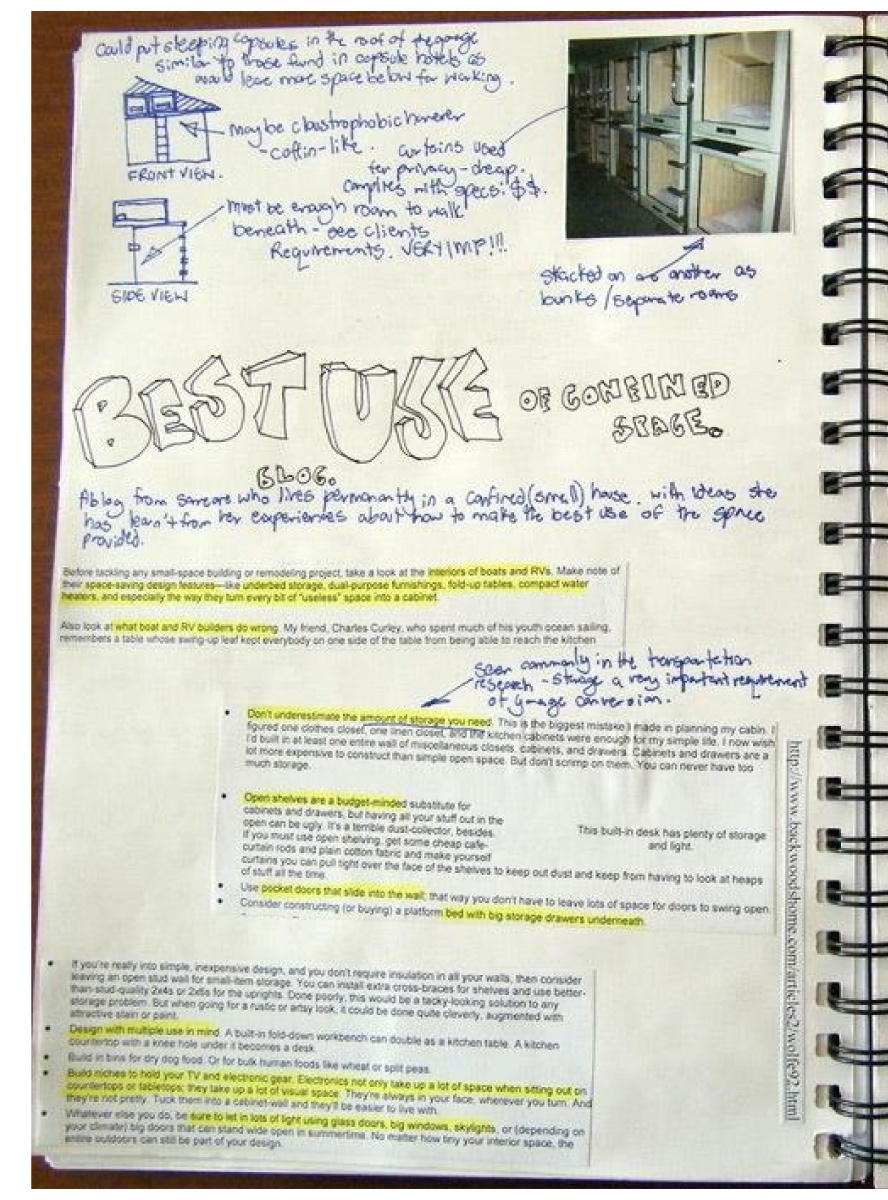 Could put sleeping capsules in the roof of the garage
similar to those found in capsule hotels as
would leave more space below for working.
maybe claustrophobic however
- coffin-like.
FRONT VIEW.
curtains used
for privacy - cheap.
complies with specs: $$.
must be enough room to walk
beneath - see clients
Requirements. VERY IMP!!!
SIDE VIEW
stacked on another as
bunks / separate rooms
BEST USE OF CONFINED
SPACE.
BLOG.
A blog from someone who lives permanantly in a confined (small) house. with ideas she
has learn't from her experiences about how to make the best use of the space
provided.
Before tackling any small-space building or remodeling project, take a look at the interiors of boats and RVs. Make note of
their space-saving design features—like underbed storage, dual-purpose furnishings, fold-up tables, compact water
heaters, and especially the way they turn every bit of "useless" space into a cabinet.
Also look at what boat and RV builders do wrong. My friend, Charles Curley, who spent much of his youth ocean sailing,
remembers a table whose swing-up leaf kept everybody on one side of the table from being able to reach the kitchen
seen commonly in the transportation
research - storage a very important requirement
of garage conversion.
• Don't underestimate the amount of storage you need. This is the biggest mistake I made in planning my cabin. I
figured one clothes closet, one linen closet, and the kitchen cabinets were enough for my simple life. I now wish
I'd built in at least one entire wall of miscellaneous closets, cabinets, and drawers. Cabinets and drawers are a
lot more expensive to construct than simple open space. But don't scrimp on them. You can never have too
much storage.
• Open shelves are a budget-minded substitute for
cabinets and drawers, but having all your stuff out in the
open can be ugly. It's a terrible dust-collector, besides.
If you must use open shelving, get some cheap cafe-
curtain rods and plain cotton fabric and make yourself
curtains you can pull tight over the face of the shelves to keep out dust and keep from having to look at heaps
of stuff all the time.
This built-in desk has plenty of storage
and light.
• Use pocket doors that slide into the wall; that way you don't have to leave lots of space for doors to swing open.
• Consider constructing (or buying) a platform bed with big storage drawers underneath.
http://www.backwoodshome.com/articles2/wolfe92.html
• If you're really into simple, inexpensive design, and you don't require insulation in all your walls, then consider
leaving an open stud wall for small-item storage. You can install extra cross-braces for shelves and use better-
than-stud-quality 2x4s or 2x6s for the uprights. Done poorly, this would be a tacky-looking solution to any
storage problem. But when going for a rustic or artsy look, it could be done quite cleverly, augmented with
attractive stain or paint.
• Design with multiple use in mind. A built-in fold-down workbench can double as a kitchen table. A kitchen
countertop with a knee hole under it becomes a desk.
• Build in bins for dry dog food. Or for bulk human foods like wheat or split peas.
• Build niches to hold your TV and electronic gear. Electronics not only take up a lot of space when sitting out on
countertops or tabletops; they take up a lot of visual space. They're always in your face, wherever you turn. And
they're not pretty. Tuck them into a cabinet-wall and they'll be easier to live with.
• Whatever else you do, be sure to let in lots of light using glass doors, big windows, skylights, or (depending on
your climate) big doors that can stand wide open in summertime. No matter how tiny your interior space, the
entire outdoors can still be part of your design.